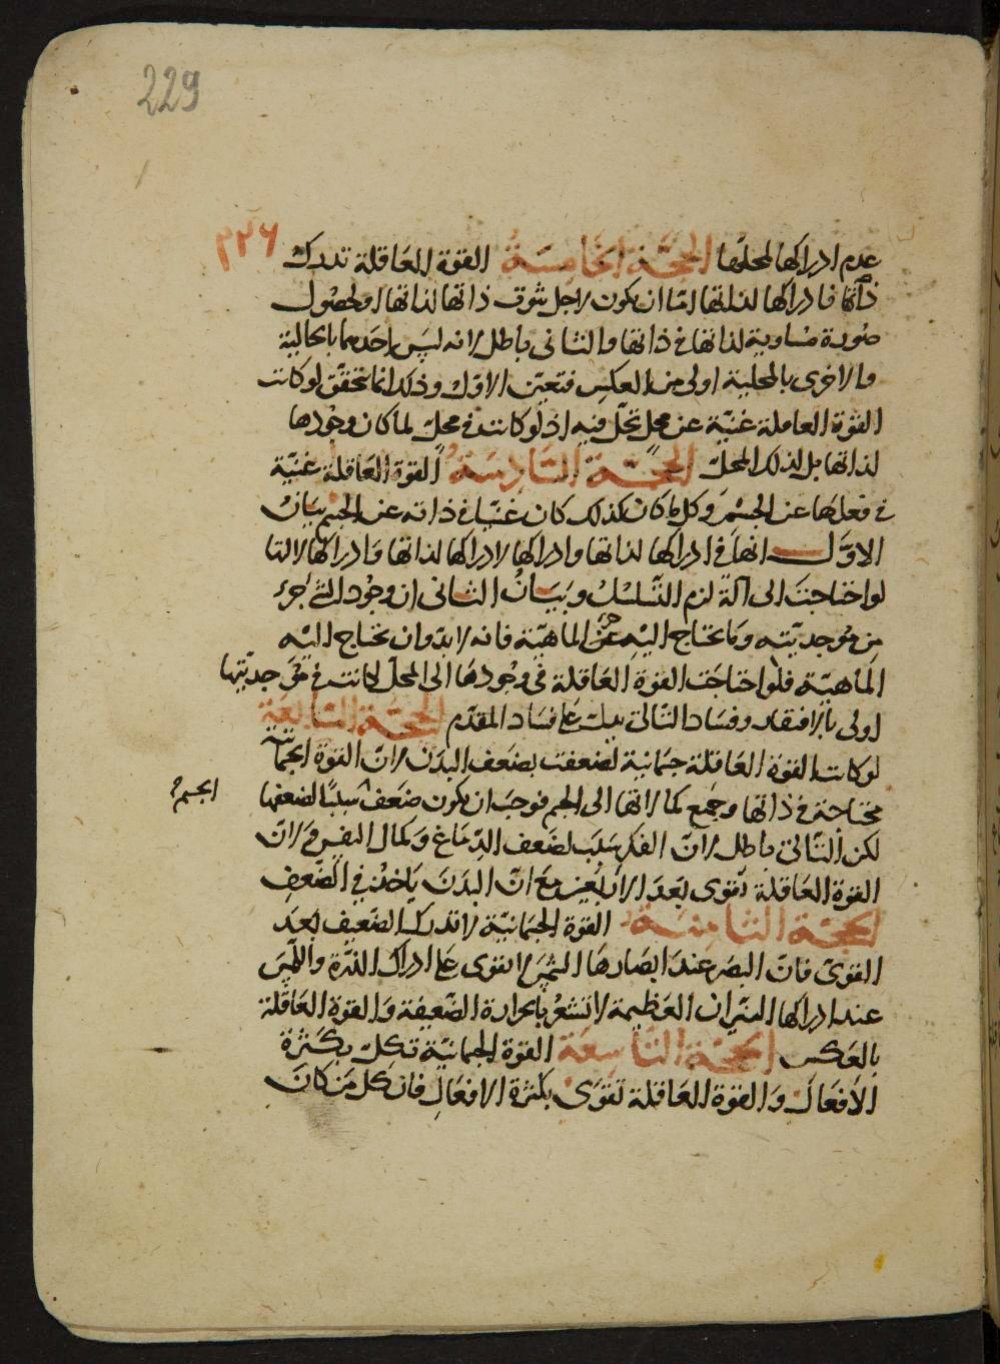 229
٢٢٦
عدم ادراكها لمحلها الحجة الخامسة القوة العاقلة تدرك
ذاتها فادراكها لذاتها اما ان يكون لاجل ثبوت ذاتها لذاتها او لحصول
صورة مساوية لذاتها في ذاتها والثاني باطل لانه ليس احدهما بالحالية
والاخرى بالمحلية اولى من العكس فتعين الاول وذلك انما تحقق لو كانت
القوة العاملة غنية عن محل تحل فيه اذ لو كانت في محل لما كان وجودها
لذاتها بل لذلك المحل الحجة السادسة القوة العاقلة غنية
في فعلها عن الجسم وكل ما كان كذلك كان غنيا في ذاته عن الجسم بيان
الاول انها في ادراكها لذاتها وادراكها لادراكها لذاتها وادراكها لالتها
لو احتاجت الى آلة لزم التسلسل وبيان الثاني ان وجود الشئ جزء
من موجديته وما تحتاج اليه جزء الماهية فانه لابد وان تحتاج اليه
الماهية فلو احتاجت القوة العاقلة في وجودها الى المحل لكانت في موجديتها
اولى بالافتقار وفساد التالي يدل على فساد المقدم الحجة السابعة
لو كانت القوة العاقلة جسمانية لضعفت بضعف البدن لان القوة الجسمانية
محتاجة في ذاتها وجميع كمالاتها الى الجسم فوجب ان يكون ضعف سببا لضعفها
الجسم
لكن التالي باطل لان الفكر سبب لضعف الدماغ وكمال النفس ولان
القوة العاقلة تقوى بعد الاربعين مع ان البدن ياخذ في الضعف
الحجة الثامنة القوة الجسمانية لا تدرك الضعيف بعد
القوى فان البصر عند ابصارها الشمس لا تقوى على ادراك الذرة واللمس
عند ادراكها النيران العظيمة لا تشعر بالحرارة الضعيفة والقوة العاقلة
بالعكس الحجة التاسعة القوة الجسمانية تكل بكثرة
الافعال والقوة العاقلة تقوى بكثرة الافعال فان كل من كان